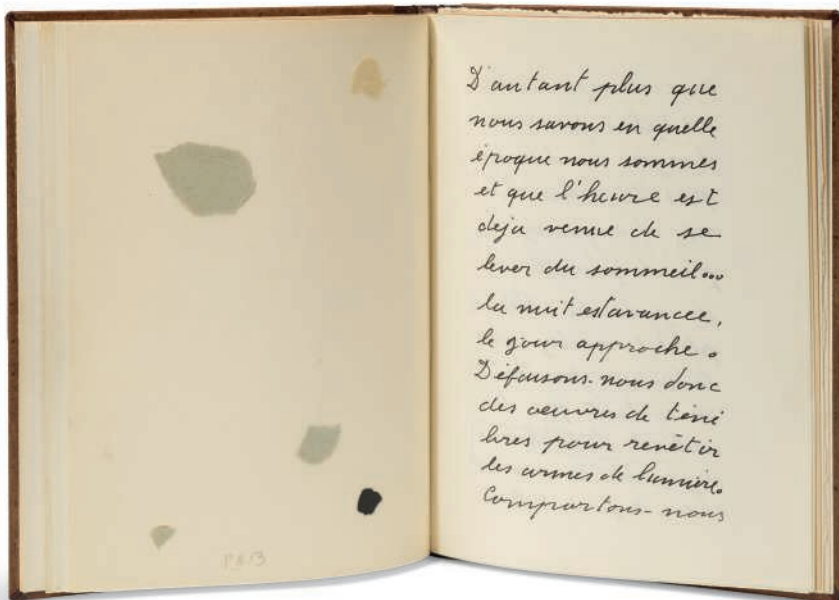 D'autant plus que
nous savons en quelle
époque nous sommes
et que l'heure est
deja venue de se
lever du sommeil...
la nuit est avancee,
le jour approche.
Défaisons-nous donc
des oeuvres de téné
bres pour revêtir
les armes de lumière.
Comportons-nous